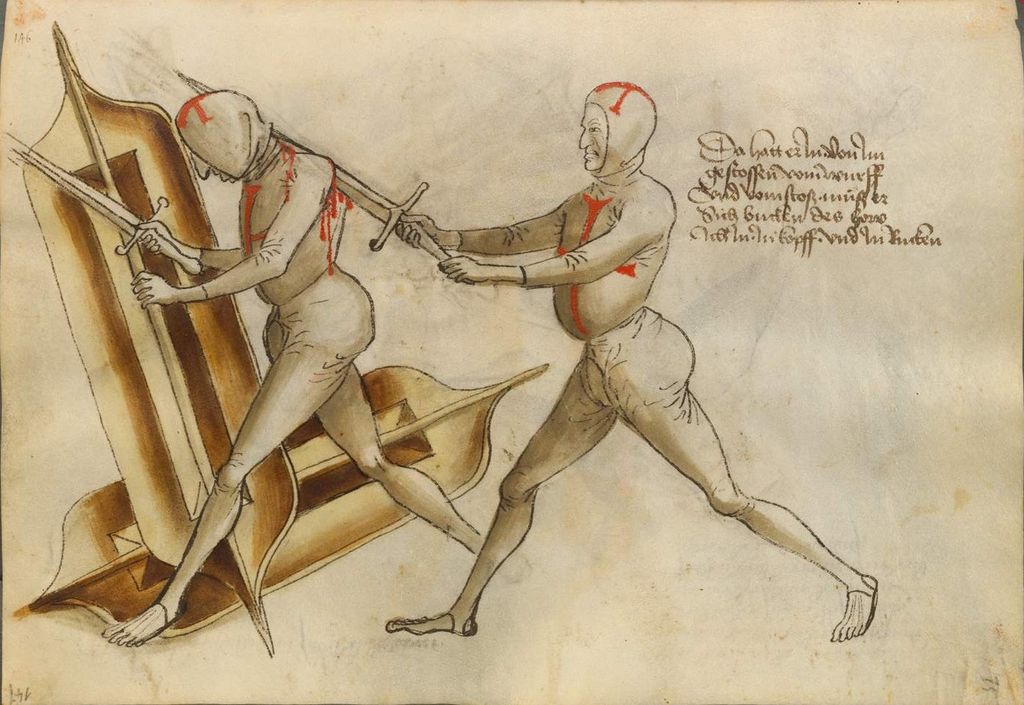 146
Da hatt er in von im
gestossen vom wurff
Und vom stosz muss er
Sich bucken des how
Ich in in kopff und in Rucken
147